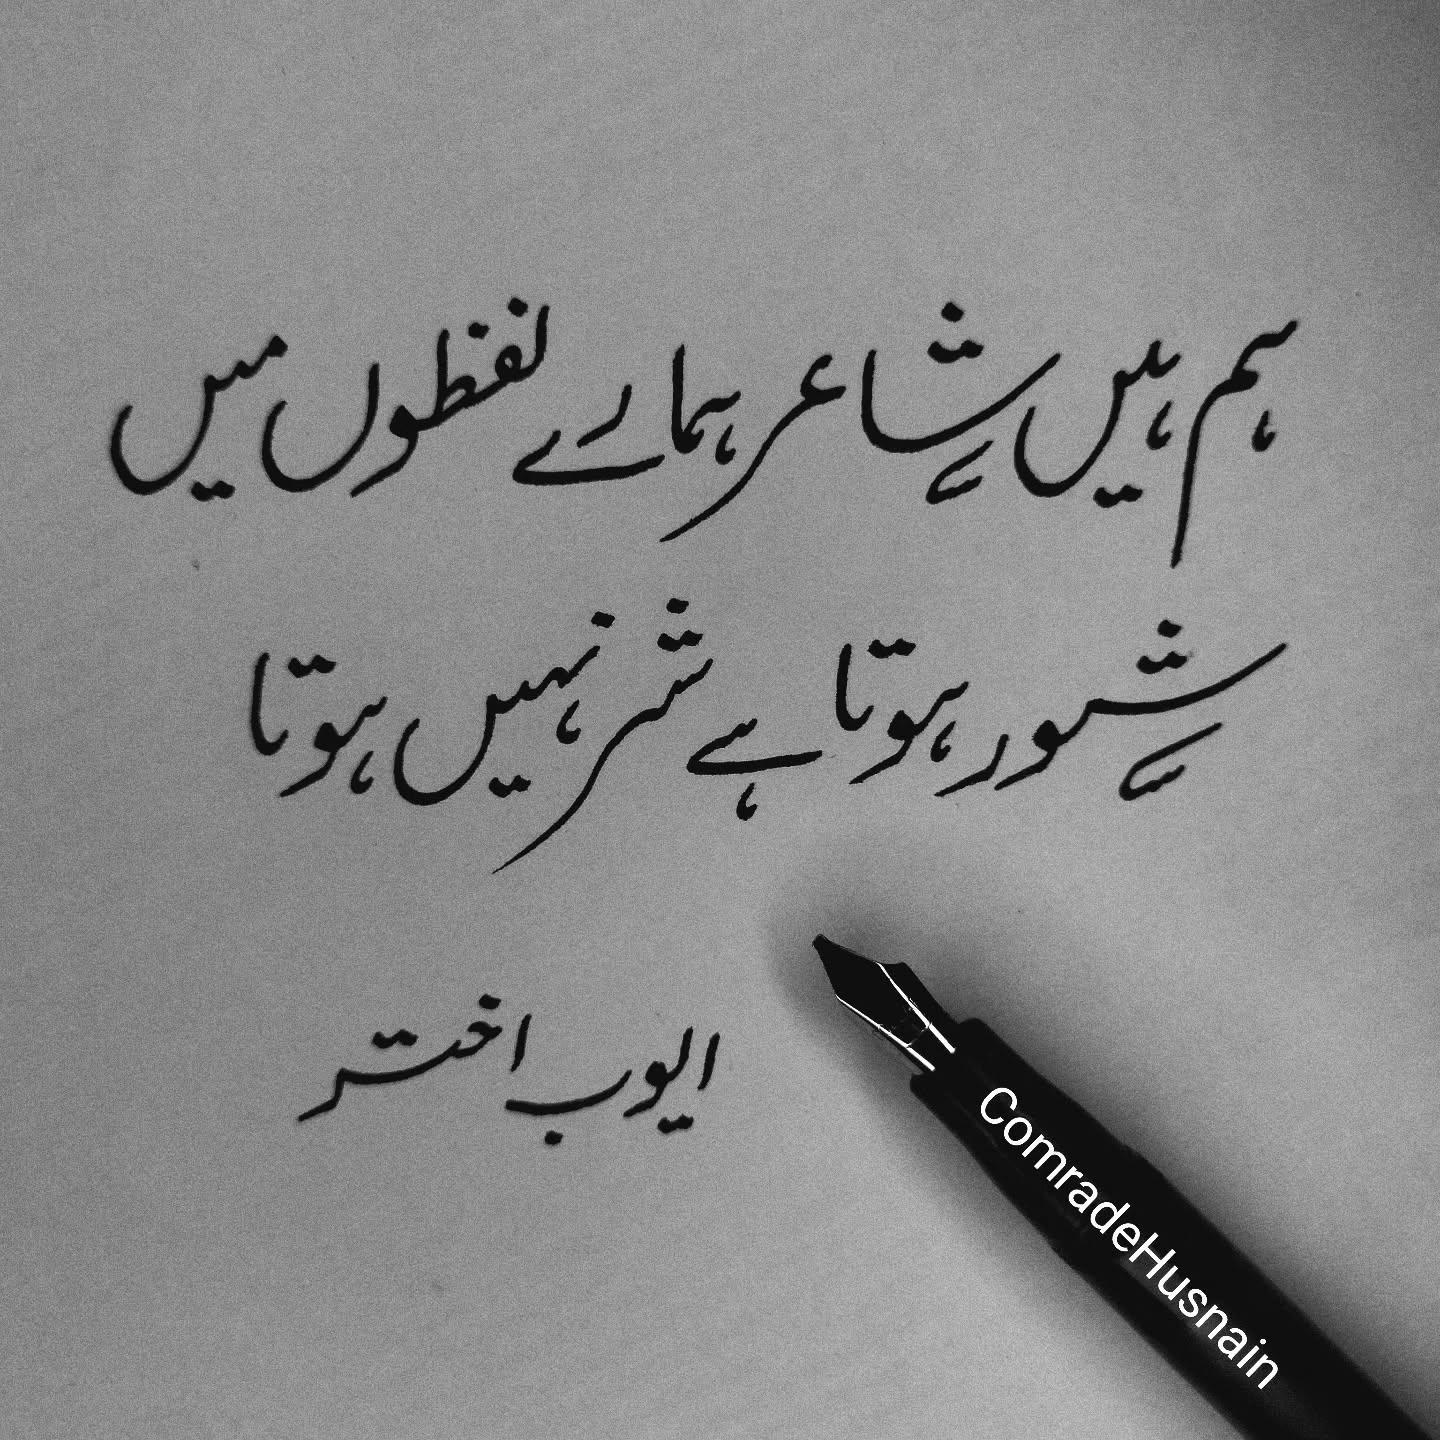 ہم ہیں شاعر ہمارے لفظوں میں
شور ہوتا ہے شر نہیں ہوتا
ایوب اختر
ComradeHusnain